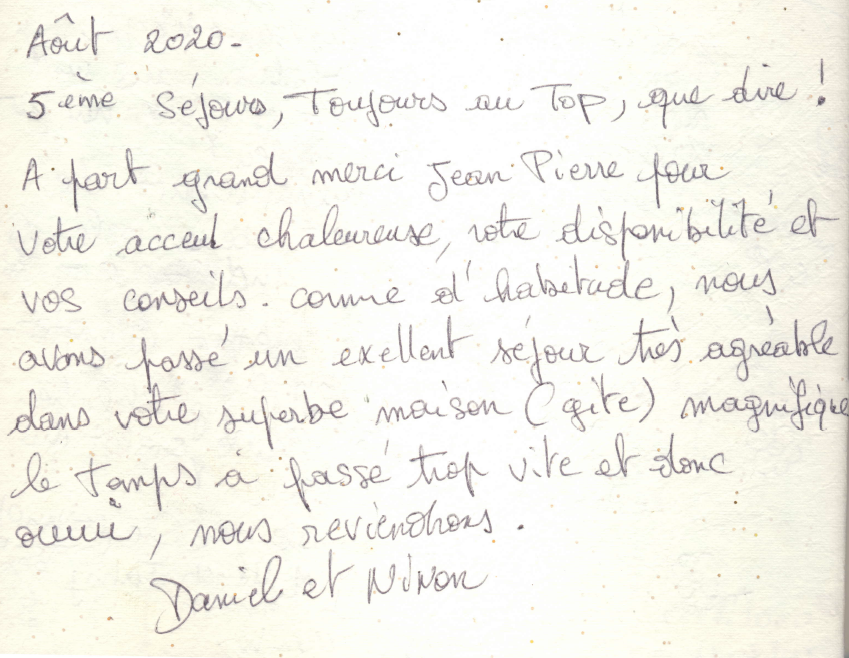 Août 2020-
5ème Séjours, Toujours au Top, que dire !
A part grand merci Jean Pierre pour
Votre acceul chaleureuse, votre disponibilité et
vos conseils. comme d'habitude, nous
avons passé un exellent séjour très agréable
dans votre superbe maison (gite) magnifique
le temps à passé trop vite et donc
, nous reviendrons.
Daniel et Ninon